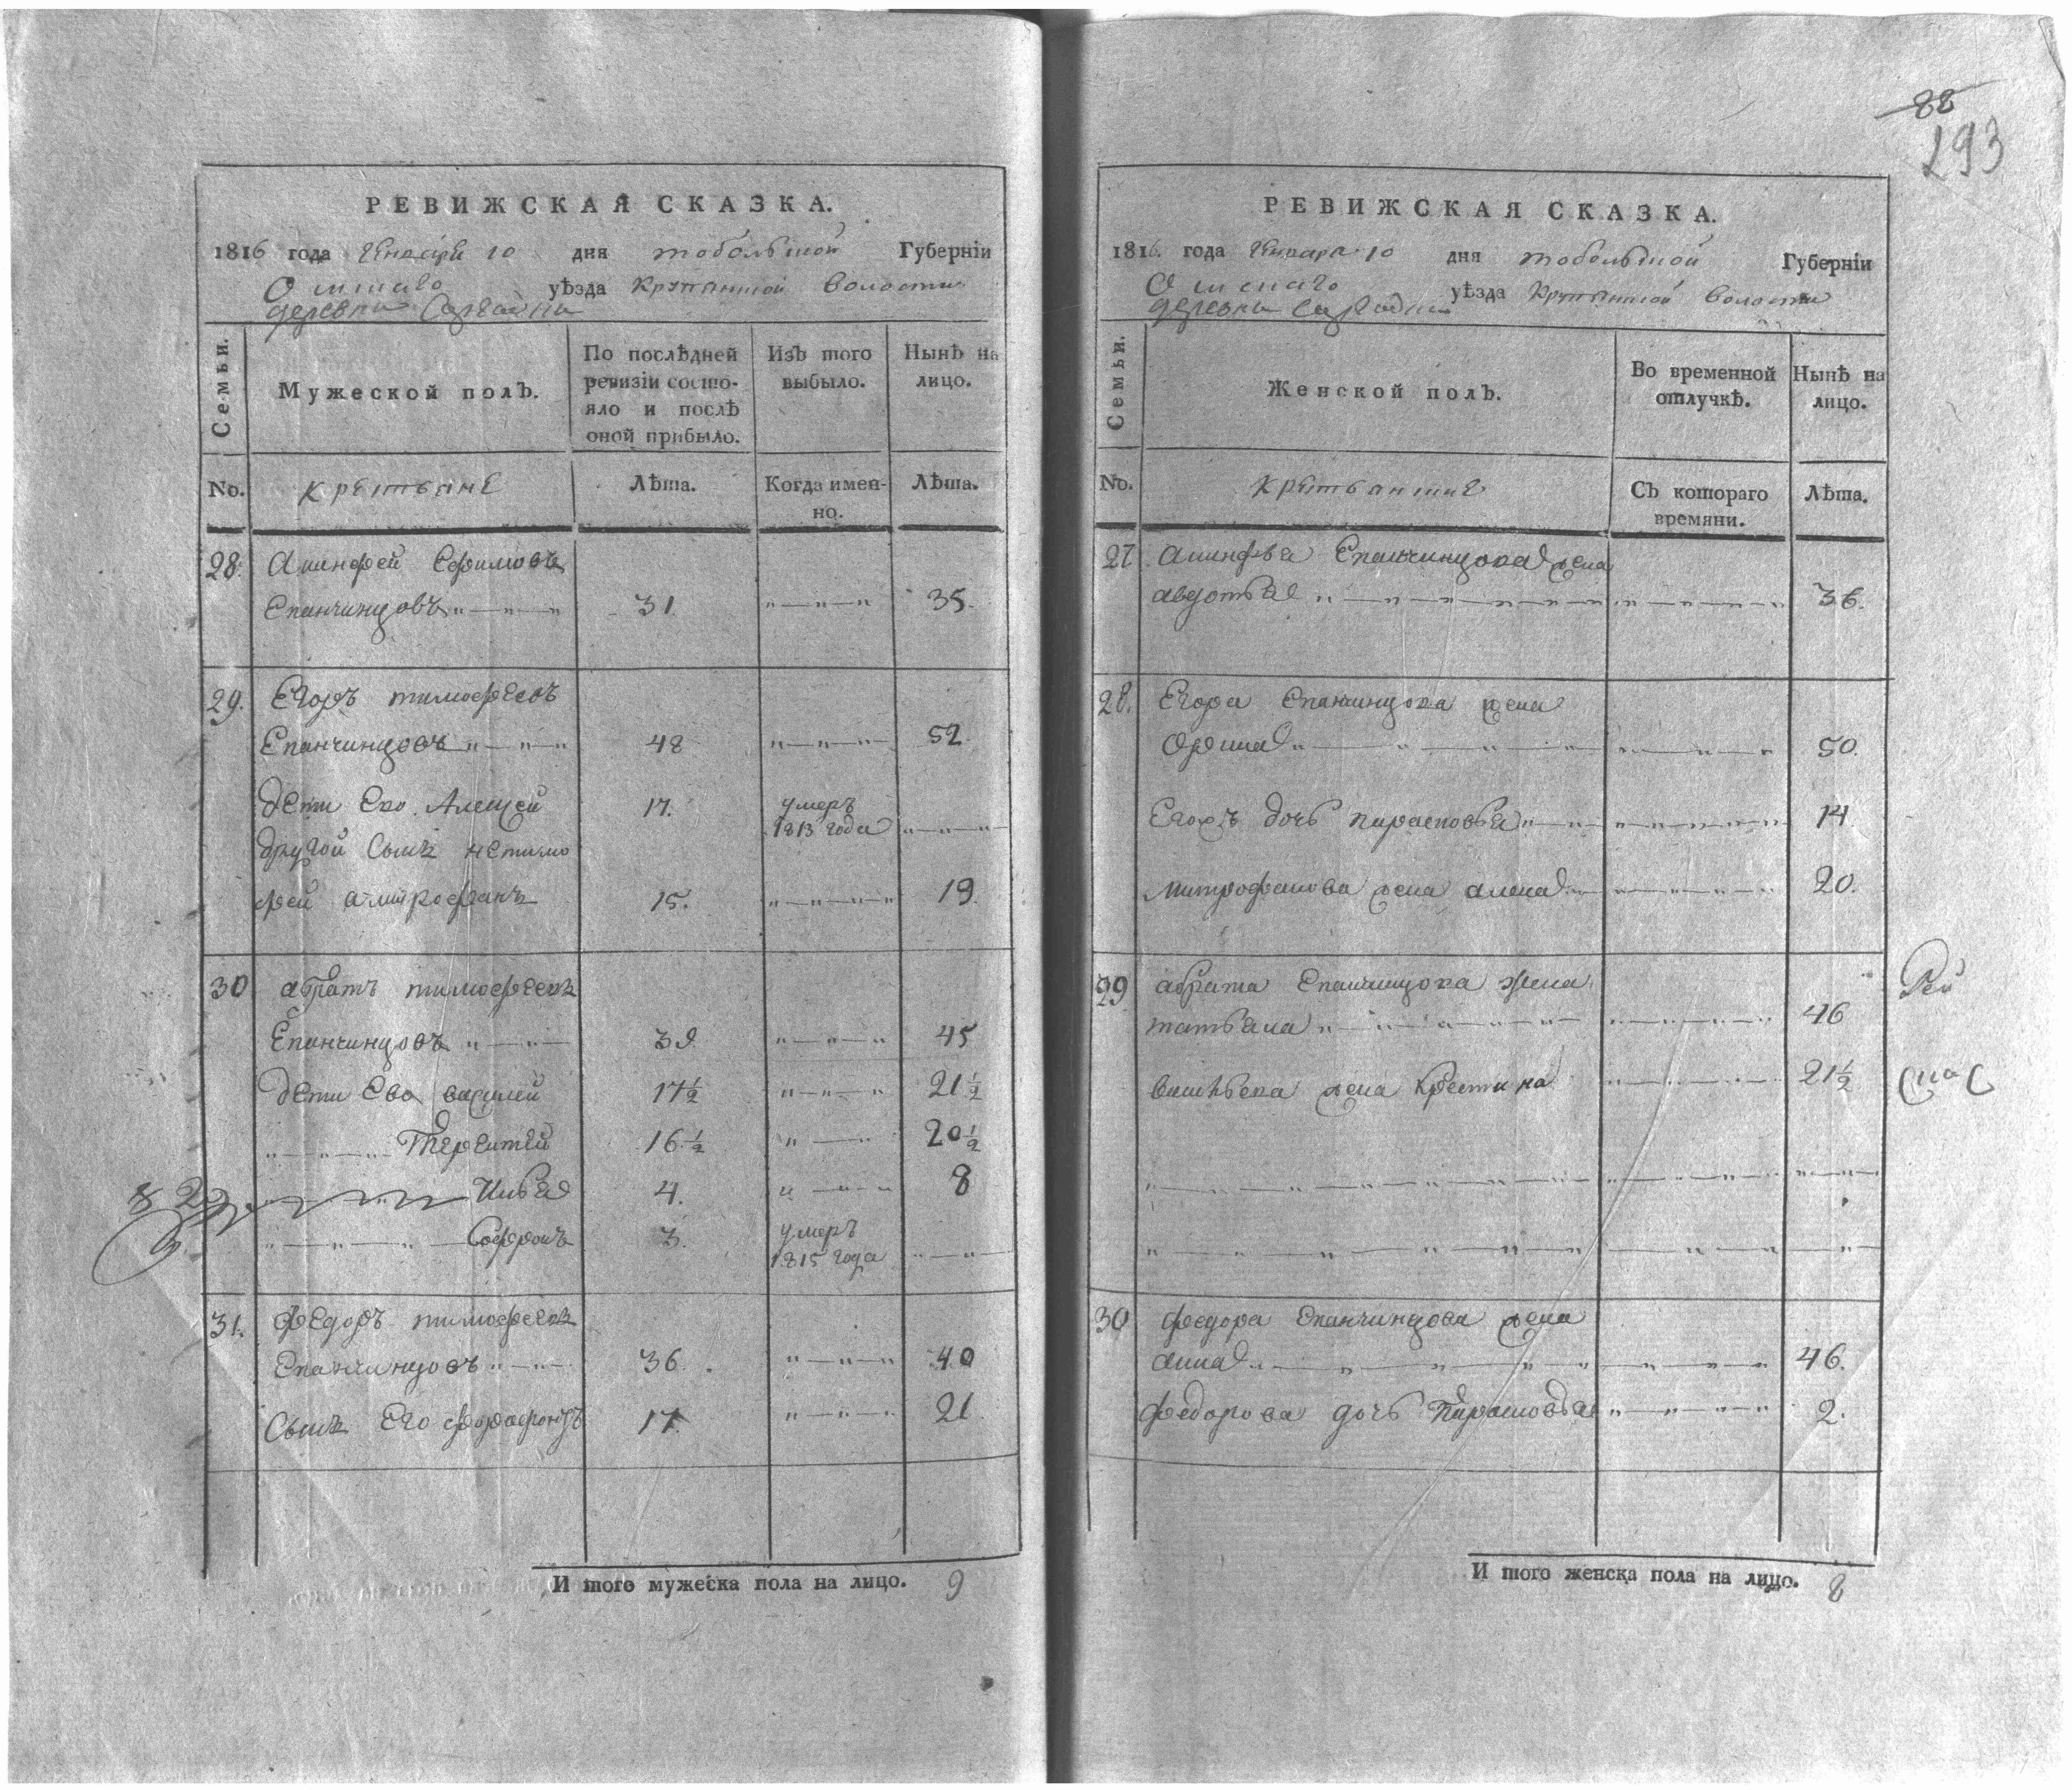 88
293
РЕВИЖСКАЯ СКАЗКА.
1816 года Генваря 10 дня тобольской Губерніи
Омскаго уѣзда Крупянской волости
деревни
Семьи.
Мужеской полъ.
По послѣдней ревизіи состо-
яло и послѣ
оной прибыло.
Изъ того
выбыло.
Нынѣ на
лицо.
No. крестьяне Лѣта. Когда имен-
но. Лѣта.
28. Акинфей Ефимовъ
Епанчинцовъ „ — „ — „ 31. „ — „ — „ 35.
29. Егоръ тимофеевъ
Епанчинцовъ „ — „ — „ 48 „ — „ — „ 52
дети Ево Алексей 17. умеръ
1813 года „ — „ — „
другой Сынъ
фей митрофанъ 15. „ — „ — „ 19.
30 абрамъ тимофеевъ
Епанчинцовъ „ — „ 39 „ — „ — „ 45
дети Ево василей 17½ „ — „ — „ 21½
„ — „ — „ Терентей 16½ „ — „ 20½
Илья 4. „ — „ — „ 8
„ — „ — „ Софронъ 3. умеръ
1815 года „ — „
31. федоръ тимофеевъ
Епанчинцовъ „ — „ 36. „ — „ — „ 40
Сынъ Его 17. „ — „ — „ 21
И того мужеска пола на лицо. 9
РЕВИЖСКАЯ СКАЗКА.
1816. года Генваря 10 дня тобольской Губерніи
Омскаго уѣзда Крупянской волости
деревни
Семьи.
Женской полъ.
Во временной
отлучкѣ.
Нынѣ на
лицо.
No. крестьянкие Съ котораго
времяни. Лѣта.
27 акинфея Епанчинцова жена
авдотья „ — „ — „ 36.
28. Егора Епанчинцова жена
Орина „ — „ — „ 50.
Егоръ дочь парасковья „ — „ — „ 14.
митрофанова жена алена „ — „ — „ 20.
29 абрама Епанчинцова жена
татьяна „ — „ — „ 46
василья жена Крестина „ — „ — „ 21½
30 федора Епанчинцова жена
анна „ — „ — „ 46.
федорова дочь парасковья „ — „ — „ 2.
И того женска пола на лицо. 8